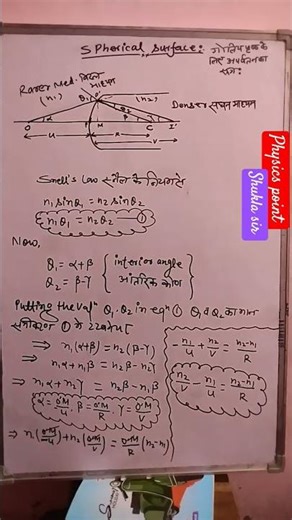 Spherical Surface:
गोलिय पृष्ठ के
लिए अपवर्तन का
सूत्र:
Rarer Med. विरल
माध्यम
(n₁)
(n₂)
Denser सघन माध्यम
O
α
M
C
I'
u
v
Physics point
Shukla sir
Snell's Law स्नैल के नियम से
n₁ sinθ₁ = n₂ sinθ₂
n₁θ₁ = n₂θ₂ ①
Now,
θ₁ = α+β { interior angle
θ₂ = β-γ आंतरिक कोण }
Putting the valⁿ θ₁, θ₂ in eqⁿ ① θ₁ व θ₂ का मान
समीकरण ① में रखने पर
⇒ n₁(α+β) = n₂(β-γ)
⇒ n₁α + n₁β = n₂β - n₂γ
⇒ n₁α + n₂γ = n₂β - n₁β
α = O'M/u, β = O'M/R, γ = O'M/v
⇒ n₁(O'M/-u) + n₂(O'M/v) = O'M/R (n₂-n₁)
-n₁/u + n₂/v = n₂-n₁/R
n₂/v - n₁/u = n₂-n₁/R